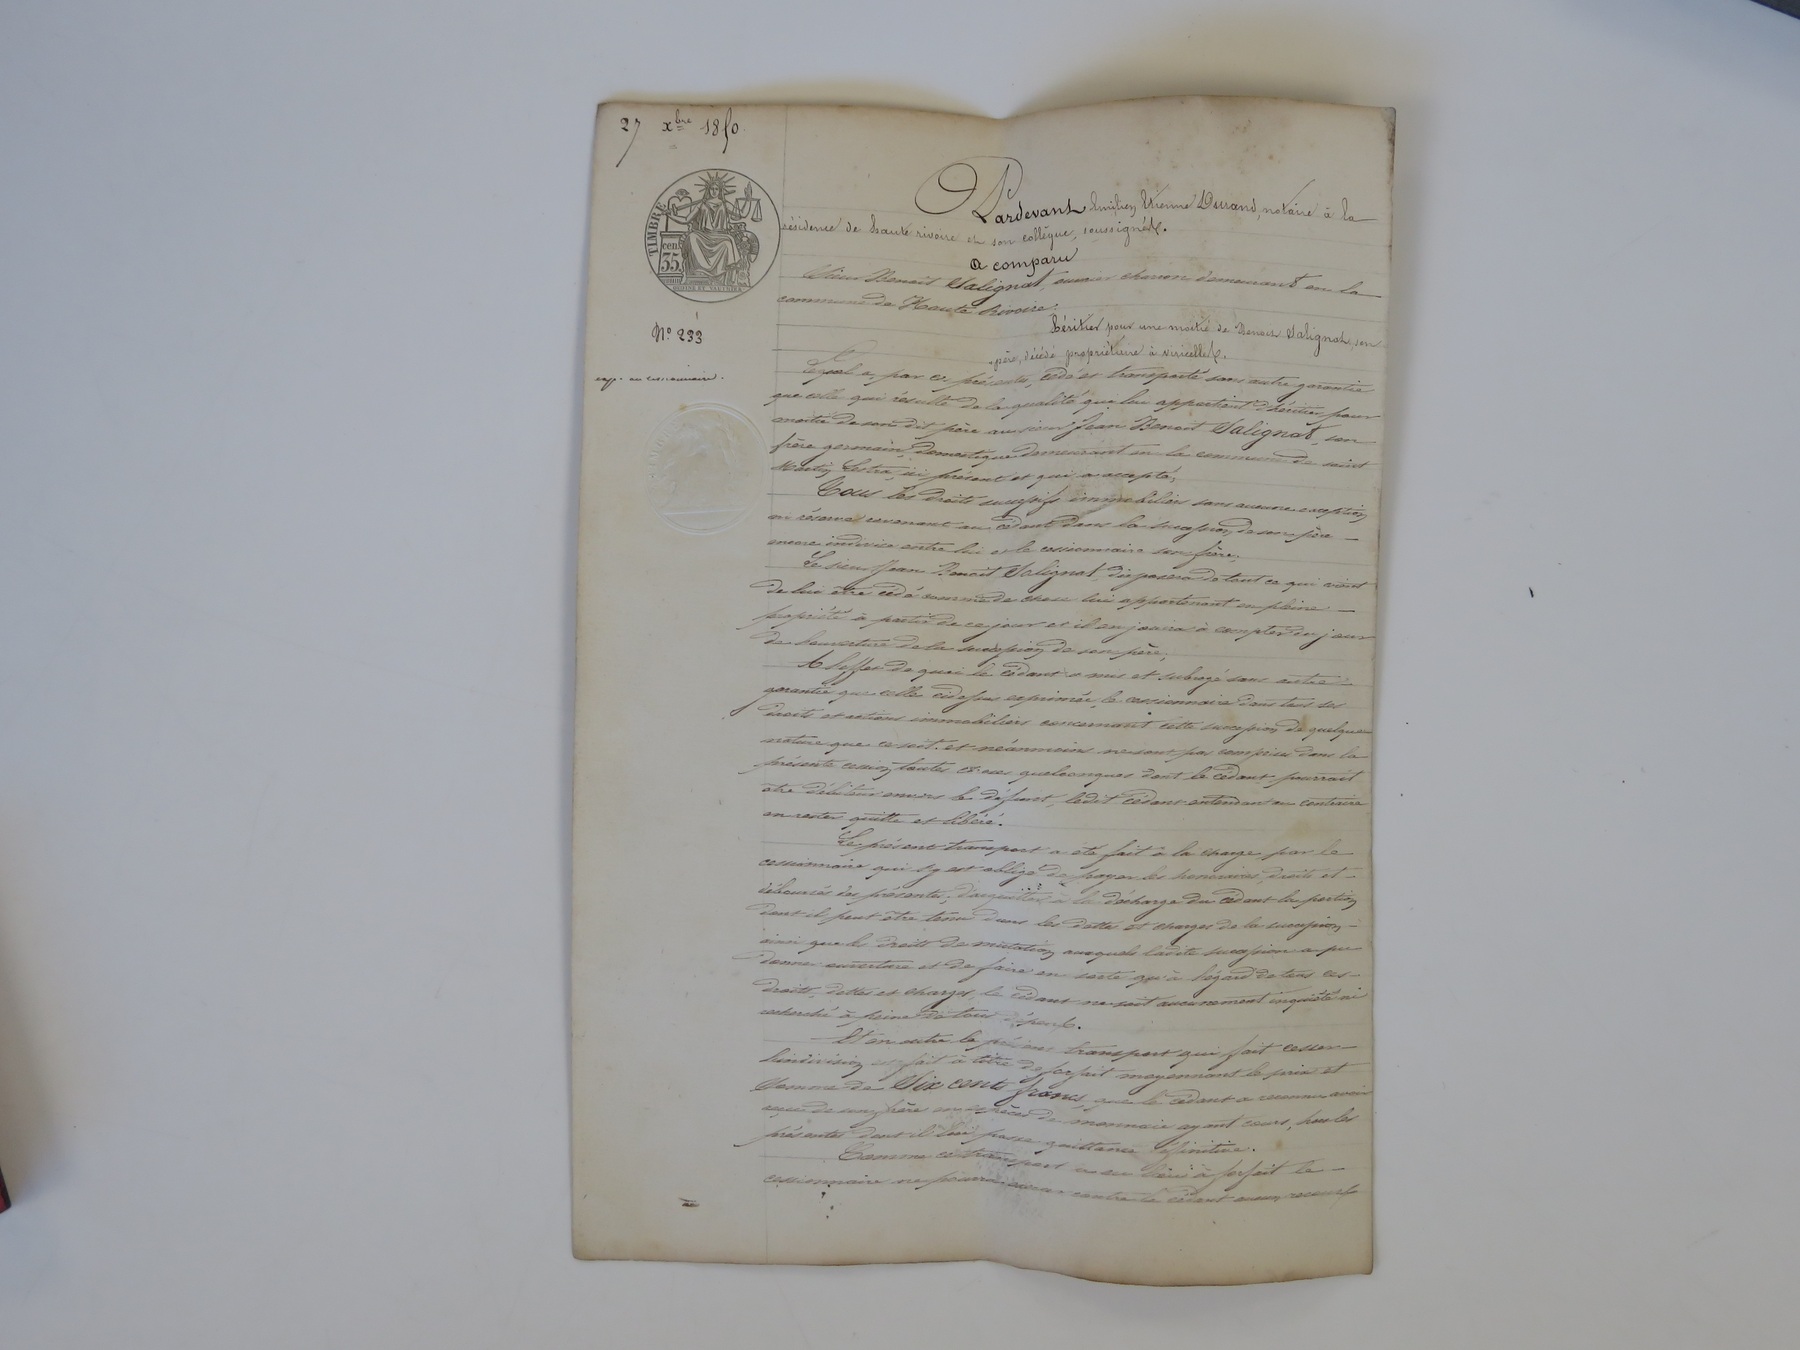 27 xbre 1850.
TIMBRE
cen.
35.
Pardevant Emilien Etienne Durand, notaire à la
résidence de haute rivoire et son collègue, soussignés.
A comparu
Sieur Benoit Salignat, ouvrier charron demeurant en la
commune de Haute Rivoire.
N° 233
héritier pour une moitié de Benoit Salignat, son
père, décédé propriétaire à viricelles.
exp. au cessionnaire.
Lequel a, par ces présentes, cédé et transporté sans autre garantie
que celle qui résulte de la qualité qui lui appartient d'héritier pour
moitié de son dit père au sieur Jean Benoit Salignat, son
frère germain, domestique demeurant en la commune de saint
Martin Lestra, ici présent et qui a accepté,
Tous les droits successifs immobiliers sans aucune exception
ni réserve revenant au cédant dans la succession de son père
encore indivise entre lui et le cessionnaire son frère.
Le sieur Jean Benoit Salignat, disposera de tout ce qui vient
de lui être cédé comme de chose lui appartenant en pleine
propriété à partir de ce jour et il en jouira à compter du jour
de l'ouverture de la succession de son père.
A l'effet de quoi le cédant a mis et subrogé sans autre
garantie que celle cidessus exprimée, le cessionnaire dans tous ses
droits et actions immobiliers concernant cette succession de quelque
nature que ce soit. et néanmoins ne sont pas comprises dans la
présente cession toutes quelconques dont le cédant pourrait
être débiteur envers le défunt, ledit cédant entendant au contraire
en rester quitte et libéré.
Le présent transport a été fait à la charge, par le
cessionnaire qui s'y est obligé de payer les honoraires, droits et
déboursés des présentes, d'acquitter à la décharge du cédant la portion
dont il peut être tenu dans les dettes et charges de la succession
ainsi que les droits de mutation auxquels ladite succession a pu
donner ouverture et de faire en sorte qu'à l'égard de tous ces
droits, dettes et charges, le cédant ne soit aucunement inquiété ni
recherché à peine de tous dépens.
Et en outre le présent transport qui fait cesser
l'indivision est fait à titre de forfait moyennant le prix et
Somme de Six cents francs, que le cédant a reconnu avoir
reçue de son frère en espèces de monnaie ayant cours, hors les
présentes dont il lui passe quittance définitive.
Comme ce transport a eu lieu à forfait le
cessionnaire ne pourra contre le cédant aucun recours